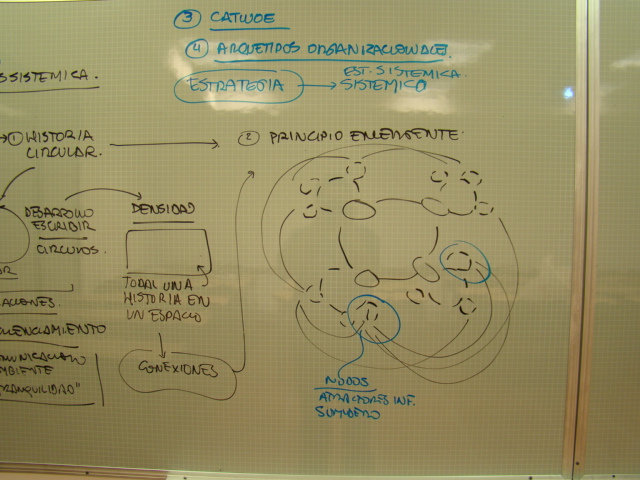 ③ CATWOE
④ ARQUETIPOS ORGANIZACIONALES.
ESTRATEGIA
EST. SISTEMICA.
SISTEMICO
SISTEMICA.
① HISTORIA
CIRCULAR.
② PRINCIPIO EMERGENTE
DESARROLLO
ESCRIBIR
CIRCULOS.
DENSIDAD
TODAL UNA
HISTORIA EN
UN ESPACIO
CONEXIONES
ACIONES.
UENCIAMIENTO
MUNICACION
MBIENTE
TRANQUILIDAD"
NODOS
ATRACTORES INF.
SUMIDERO